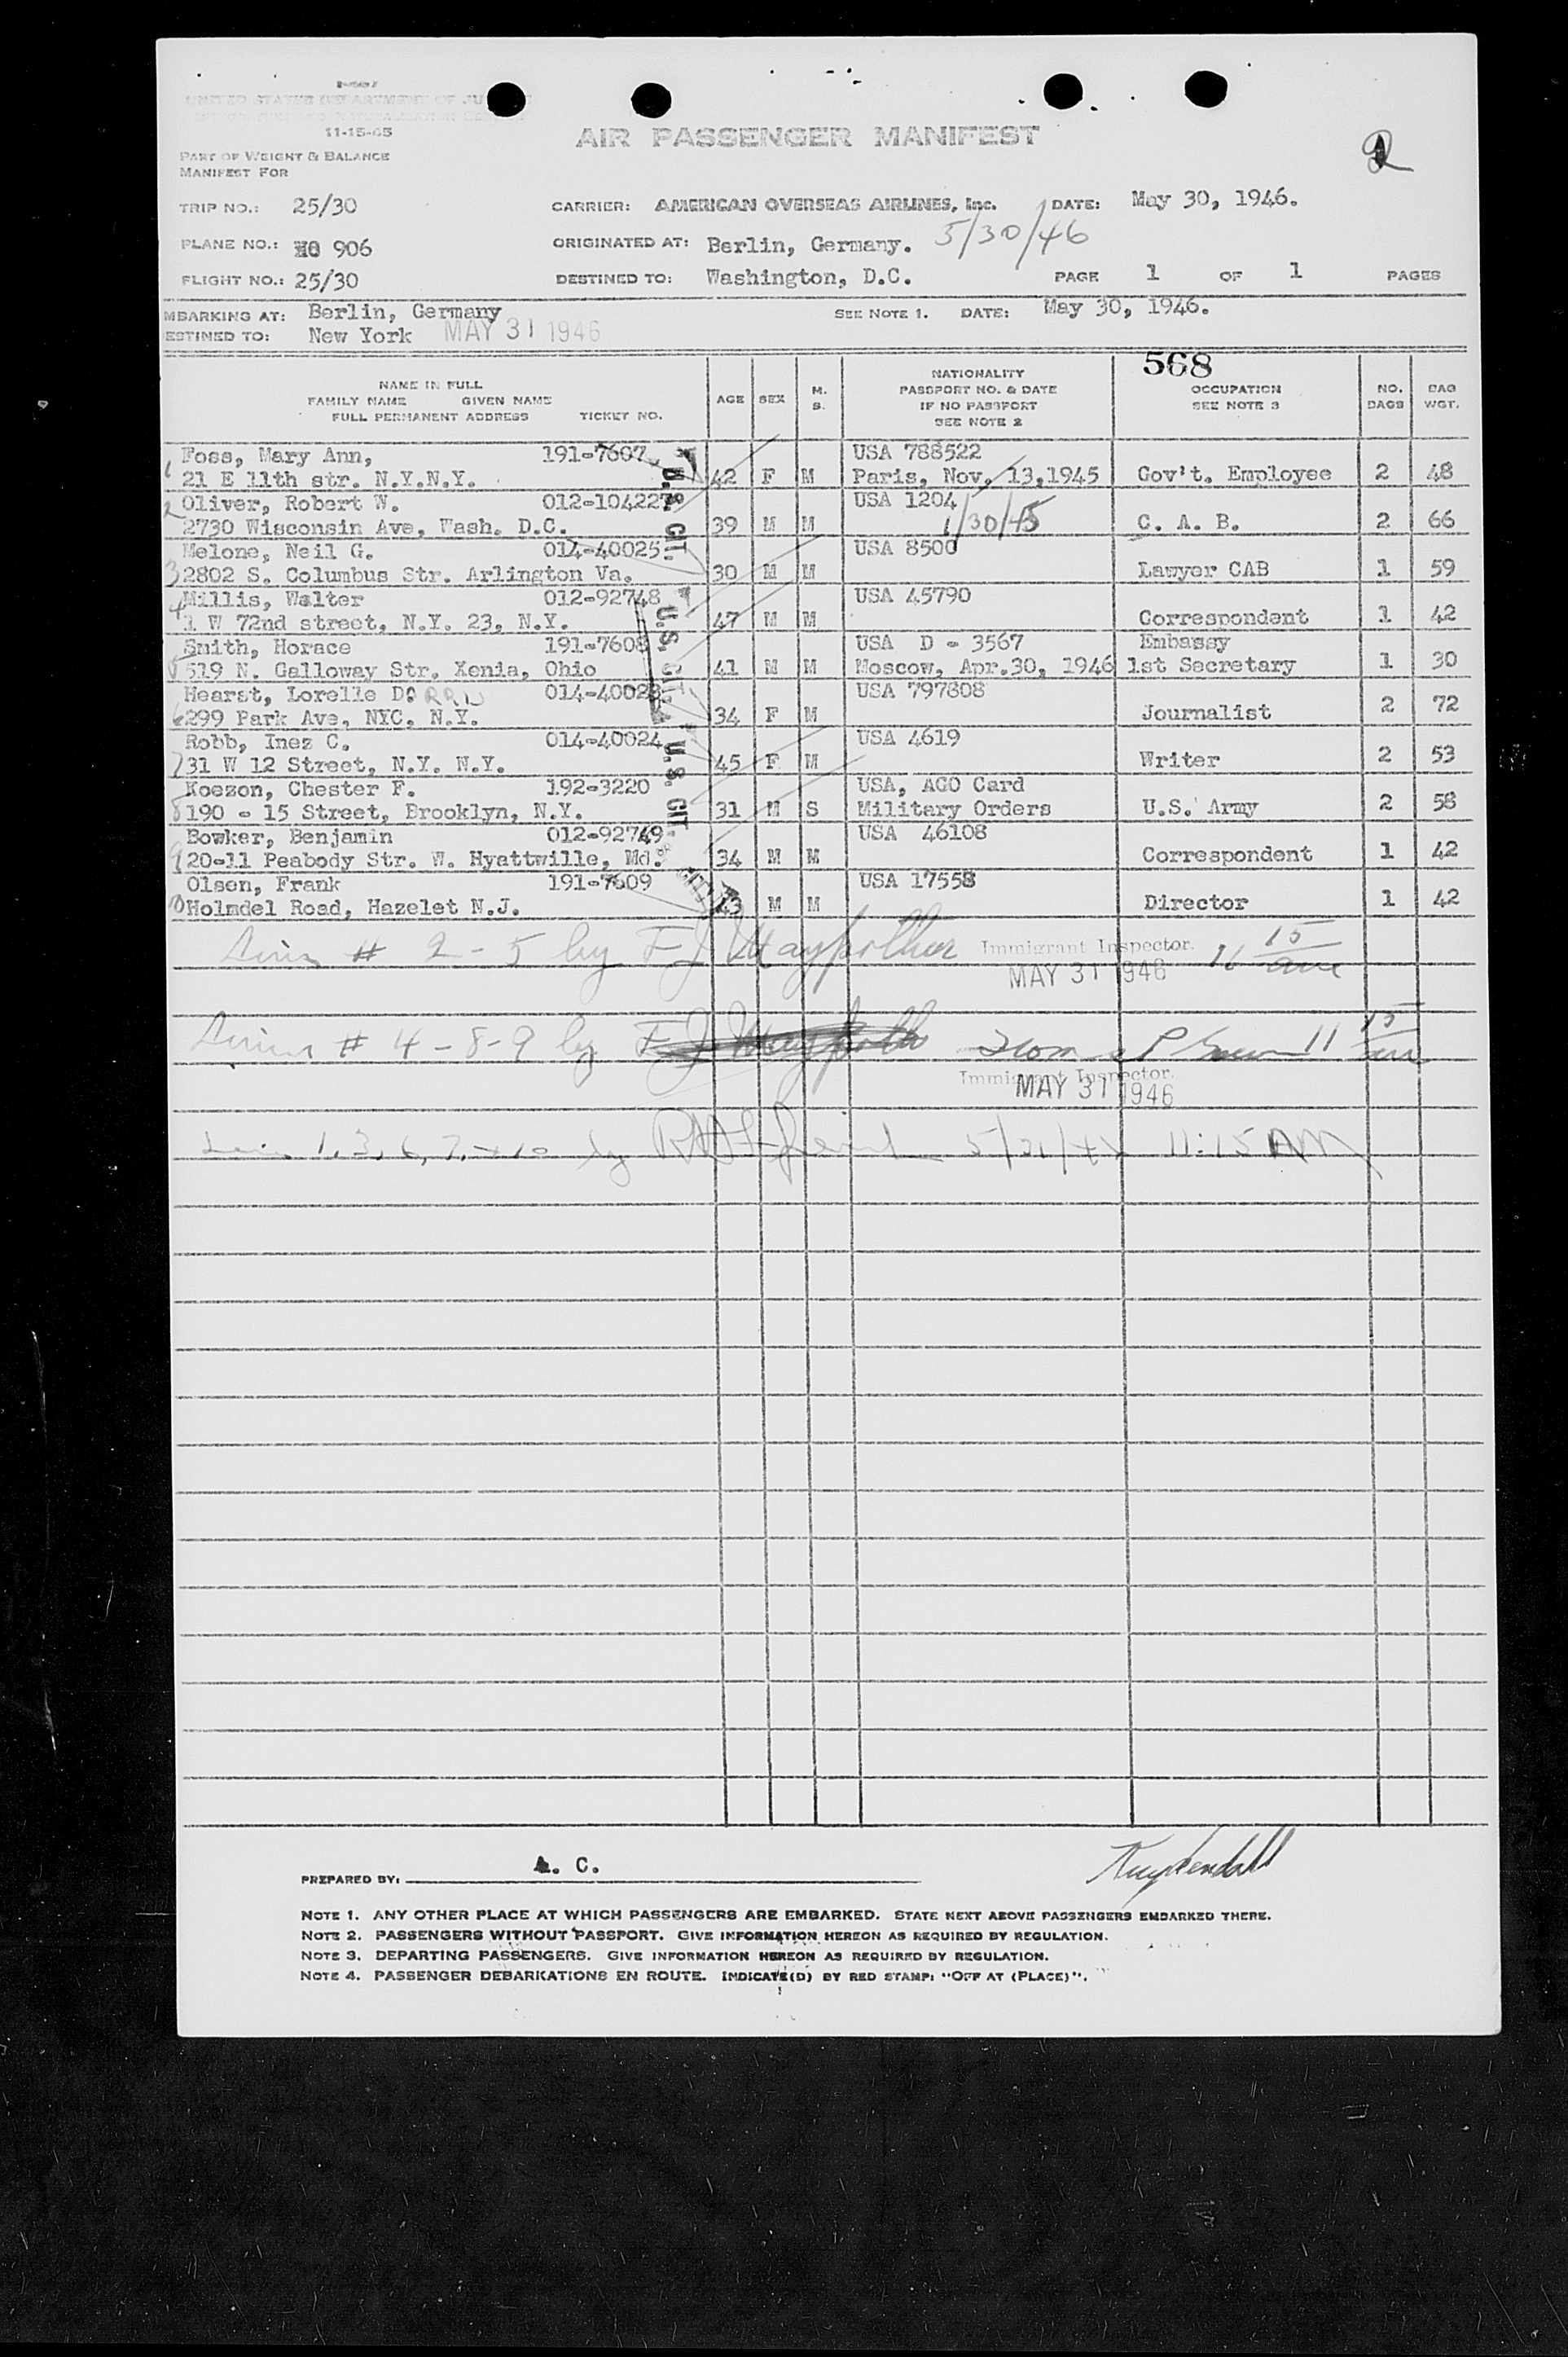 UNITED STATES DEPARTMENT OF JUSTICE
11-15-45
AIR PASSENGER MANIFEST
2
PART OF WEIGHT & BALANCE
MANIFEST FOR
TRIP NO.: 25/30 CARRIER: AMERICAN OVERSEAS AIRLINES, Inc. DATE: May 30, 1946.
PLANE NO.: 906 ORIGINATED AT: Berlin, Germany. 5/30/46
FLIGHT NO.: 25/30 DESTINED TO: Washington, D.C. PAGE 1 OF 1 PAGES
MBARKING AT: Berlin, Germany SEE NOTE 1. DATE: May 30, 1946.
ESTINED TO: New York MAY 31 1946
568
NAME IN FULL
FAMILY NAME GIVEN NAME
FULL PERMANENT ADDRESS TICKET NO.
AGE SEX M. S.
NATIONALITY
PASSPORT NO. & DATE
IF NO PASSPORT
SEE NOTE 2
OCCUPATION
SEE NOTE 3
NO. BAGS
BAG WGT.
1 Foss, Mary Ann, 191-7607 USA 788522
21 E 11th str. N.Y.N.Y. 42 F M Paris, Nov. 13,1945 Gov't. Employee 2 48
2 Oliver, Robert W. 012-104227 USA 1204
2730 Wisconsin Ave, Wash. D.C. 39 M M 1/30/45 C. A. B. 2 66
3 Melone, Neil G. 014-40025 USA 8500
2802 S. Columbus Str. Arlington Va. 30 M M Lawyer CAB 1 59
4 Millis, Walter 012-92748 USA 45790
1 W 72nd street, N.Y. 23, N.Y. 47 M M Correspondent 1 42
5 Smith, Horace 191-7608 USA D - 3567 Embassy
519 N. Galloway Str. Xenia, Ohio 41 M M Moscow, Apr.30, 1946 1st Secretary 1 30
6 Hearst, Lorelle D. 014-40023 USA 797808
299 Park Ave, NYC, N.Y. 34 F M Journalist 2 72
7 Robb, Inez C. 014-40024 USA 4619
31 W 12 Street, N.Y. N.Y. 45 F M Writer 2 53
8 Koezon, Chester F. 192-3220 USA, AGO Card
190 - 15 Street, Brooklyn, N.Y. 31 M S Military Orders U.S. Army 2 58
9 Bowker, Benjamin 012-92749 USA 46108
20-11 Peabody Str. W. Hyattwille, Md. 34 M M Correspondent 1 42
10 Olsen, Frank 191-7609 USA 17558
Holmdel Road, Hazelet N.J. 43 M M Director 1 42
U.S. CIT.
U.S. CIT.
U.S. CIT.
# 2 - 5 by F J Immigrant Inspector.
MAY 31 1946
# 4 - 8 - 9 by 11 15
Immigrant Inspector.
MAY 31 1946
1, 3, 6, 7, + 10 by 11:15 AM
PREPARED BY: A. C.
Kuykendall
NOTE 1. ANY OTHER PLACE AT WHICH PASSENGERS ARE EMBARKED. STATE NEXT ABOVE PASSENGERS EMBARKED THERE.
NOTE 2. PASSENGERS WITHOUT PASSPORT. GIVE INFORMATION HEREON AS REQUIRED BY REGULATION.
NOTE 3. DEPARTING PASSENGERS. GIVE INFORMATION HEREON AS REQUIRED BY REGULATION.
NOTE 4. PASSENGER DEBARKATIONS EN ROUTE. INDICATE(D) BY RED STAMP: "OFF AT (PLACE)".